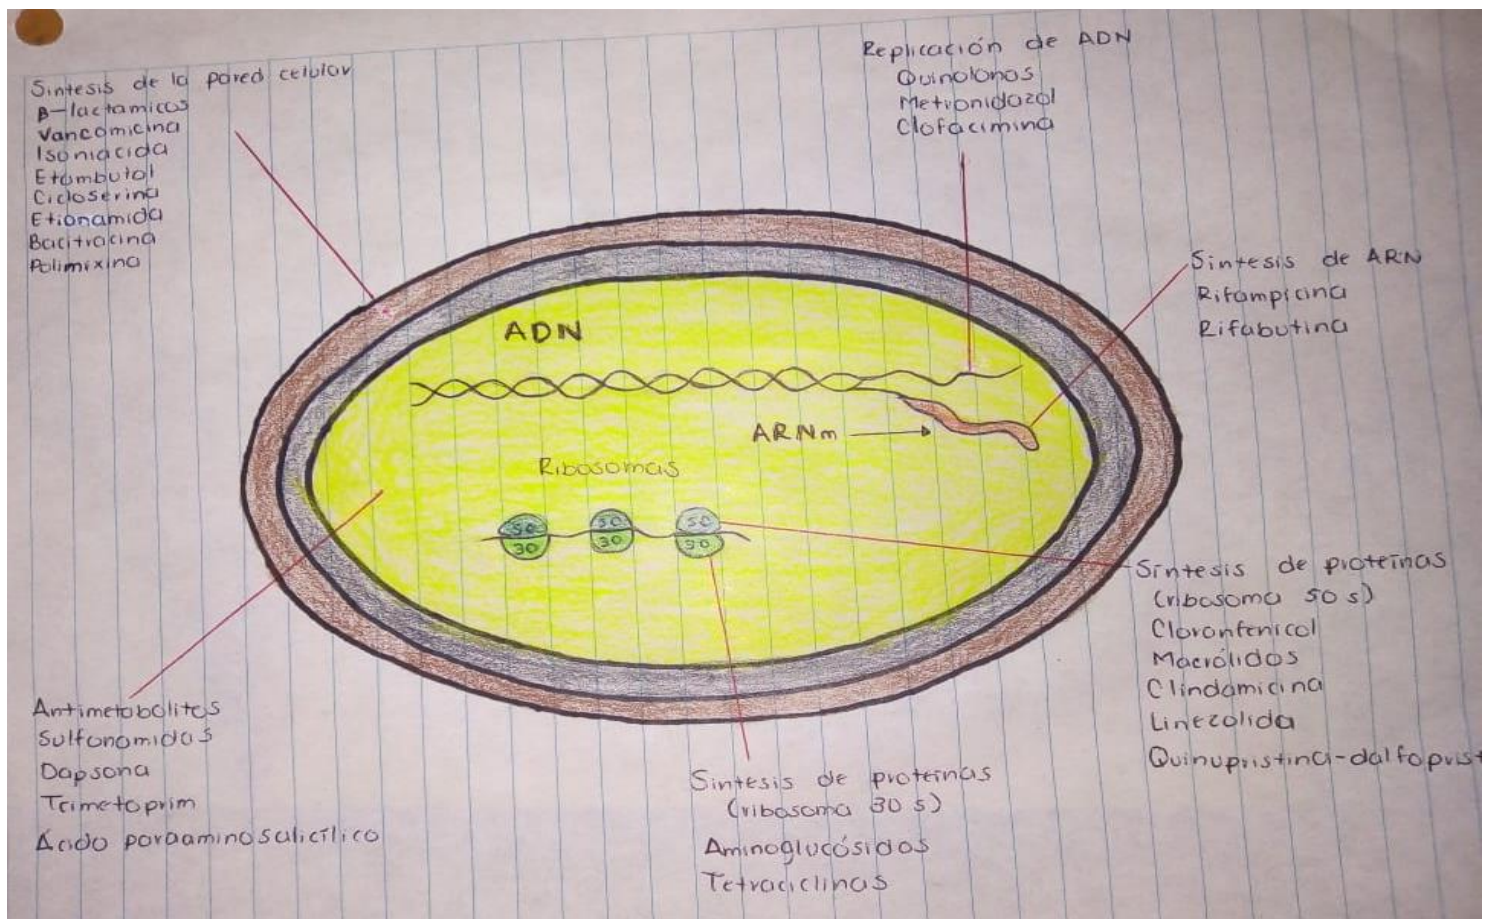 Sintesis de la pared celular
β-lactamicos
Vancomicina
Isoniacida
Etambutol
Cicloserina
Etionamida
Bacitracina
Polimixina
Replicación de ADN
Quinolonas
Metronidazol
Clofacimina
Sintesis de ARN
Rifampicina
Rifabutina
ADN
ARNm
Ribosomas
50 50 50
30 30 50
Síntesis de proteínas
(ribosoma 50 s)
Cloronfenicol
Macrólidos
Clindamicina
Linezolida
Quinupristina-dalfoprist
Antimetabolitos
Sulfonamidas
Dapsona
Trimetoprim
Ácido paraaminosalicílico
Síntesis de proteínas
(ribosoma 30 s)
Aminoglucósidos
Tetraciclinas